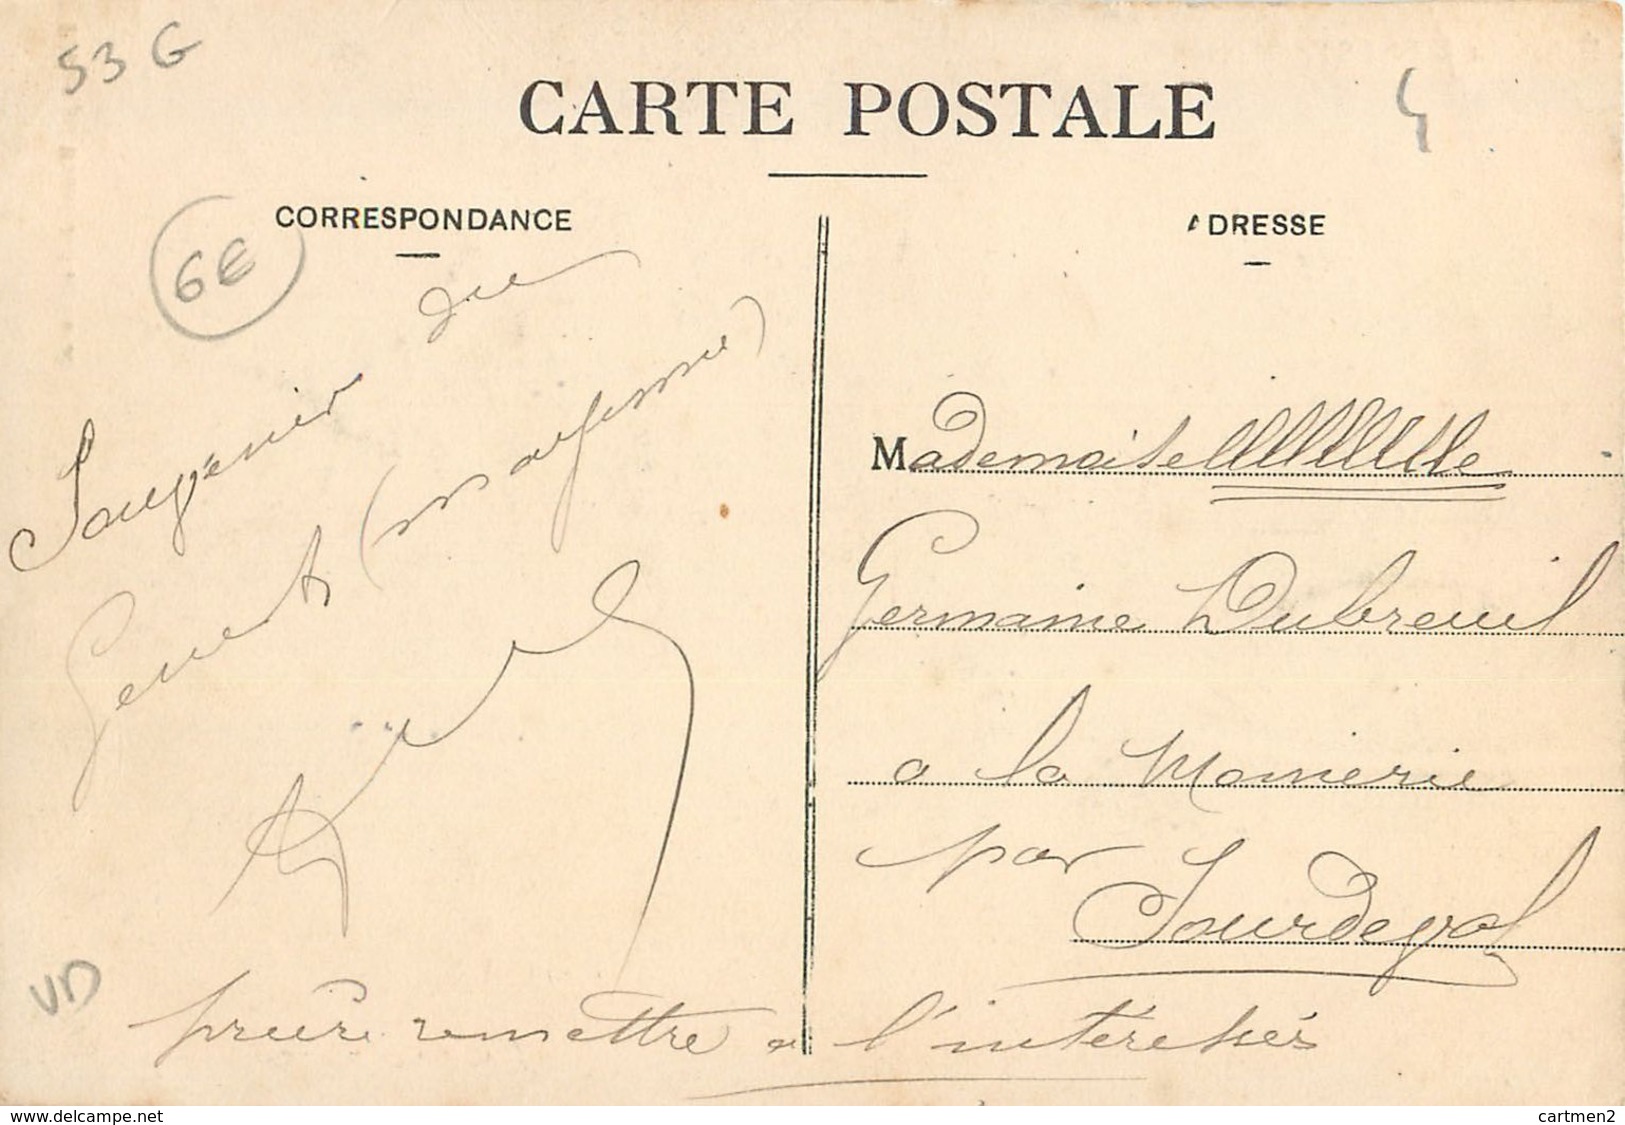 53 G
CARTE POSTALE
CORRESPONDANCE
ADRESSE
6€
Souvenir du
Genest (mayenne)
Mademoiselllllllllllle
Germaine Dubreuil
a la Mainerie
par Jourdegal
prière remettre a l'intéréssés
VD
www.delcampe.net
cartmen2